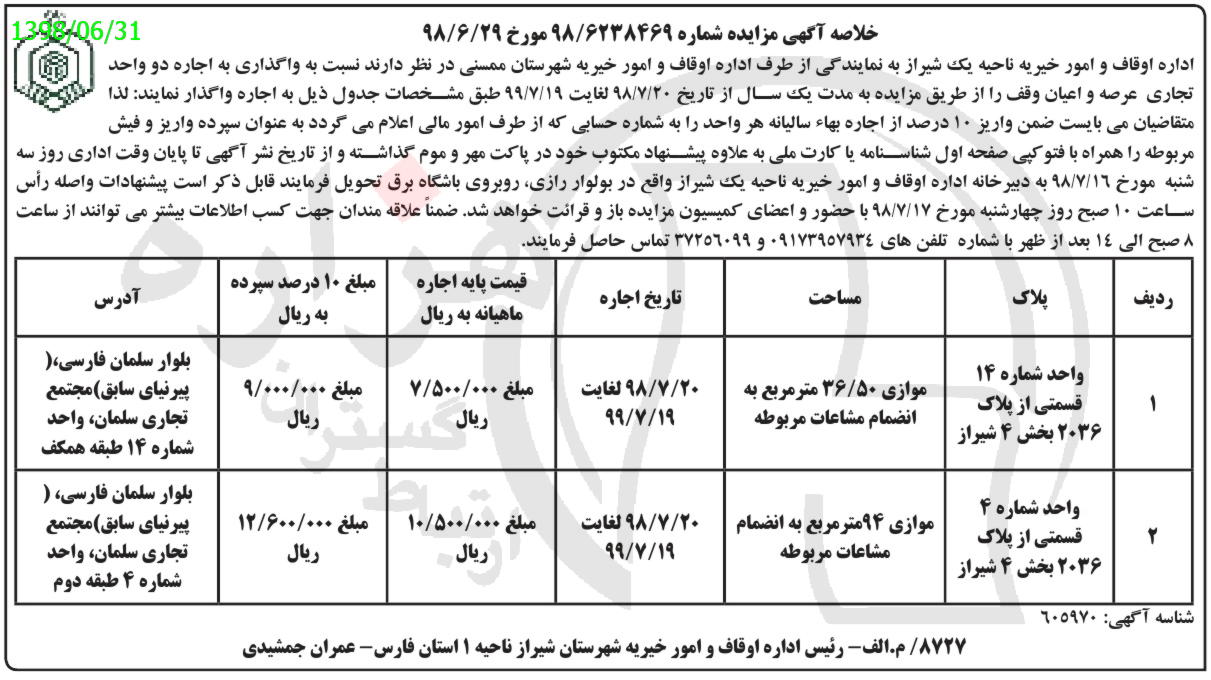 1398/06/31
خلاصه آگهی مزایده شماره ۹۸/۶۲۳۸۴۶۹ مورخ ۹۸/۶/۲۹
اداره اوقاف و امور خیریه ناحیه یک شیراز به نمایندگی از طرف اداره اوقاف و امور خیریه شهرستان ممسنی در نظر دارند نسبت به واگذاری به اجاره دو واحد
تجاری عرصه و اعیان وقف را از طریق مزایده به مدت یک سال از تاریخ ۹۸/۷/۲۰ لغایت ۹۹/۷/۱۹ طبق مشخصات جدول ذیل به اجاره واگذار نمایند: لذا
متقاضیان می بایست ضمن واریز ۱۰ درصد از اجاره بهاء سالیانه هر واحد را به شماره حسابی که از طرف امور مالی اعلام می گردد به عنوان سپرده واریز و فیش
مربوطه را همراه با فتوکپی صفحه اول شناسنامه یا کارت ملی به علاوه پیشنهاد مکتوب خود در پاکت مهر و موم گذاشته و از تاریخ نشر آگهی تا پایان وقت اداری روز سه
شنبه مورخ ۹۸/۷/۱۶ به دبیرخانه اداره اوقاف و امور خیریه ناحیه یک شیراز واقع در بولوار رازی، روبروی باشگاه برق تحویل فرمایند قابل ذکر است پیشنهادات واصله رأس
ساعت ۱۰ صبح روز چهارشنبه مورخ ۹۸/۷/۱۷ با حضور و اعضای کمیسیون مزایده باز و قرائت خواهد شد. ضمناً علاقه مندان جهت کسب اطلاعات بیشتر می توانند از ساعت
۸ صبح الی ۱۴ بعد از ظهر با شماره تلفن های ۰۹۱۷۳۹۵۷۹۳۴ و ۳۷۲۵۶۰۹۹ تماس حاصل فرمایند.
ردیف پلاک مساحت تاریخ اجاره قیمت پایه اجاره ماهیانه به ریال مبلغ ۱۰ درصد سپرده به ریال آدرس
۱
واحد شماره ۱۴
قسمتی از پلاک
۲۰۳۶ بخش ۴ شیراز
موازی ۳۶/۵۰ مترمربع به
انضمام مشاعات مربوطه
۹۸/۷/۲۰ لغایت
۹۹/۷/۱۹
مبلغ ۷/۵۰۰/۰۰۰
ریال
مبلغ ۹/۰۰۰/۰۰۰
ریال
بلوار سلمان فارسی،(
پیرنیای سابق)مجتمع
تجاری سلمان، واحد
شماره ۱۴ طبقه همکف
۲
واحد شماره ۴
قسمتی از پلاک
۲۰۳۶ بخش ۴ شیراز
موازی ۹۴مترمربع به انضمام
مشاعات مربوطه
۹۸/۷/۲۰ لغایت
۹۹/۷/۱۹
مبلغ ۱۰/۵۰۰/۰۰۰
ریال
مبلغ ۱۲/۶۰۰/۰۰۰
ریال
بلوار سلمان فارسی، (
پیرنیای سابق)مجتمع
تجاری سلمان، واحد
شماره ۴ طبقه دوم
شناسه آگهی: ۶۰۵۹۷۰
۸۷۲۷/ م.الف- رئیس اداره اوقاف و امور خیریه شهرستان شیراز ناحیه ۱ استان فارس- عمران جمشیدی
هزاره
گستران
ارتباط